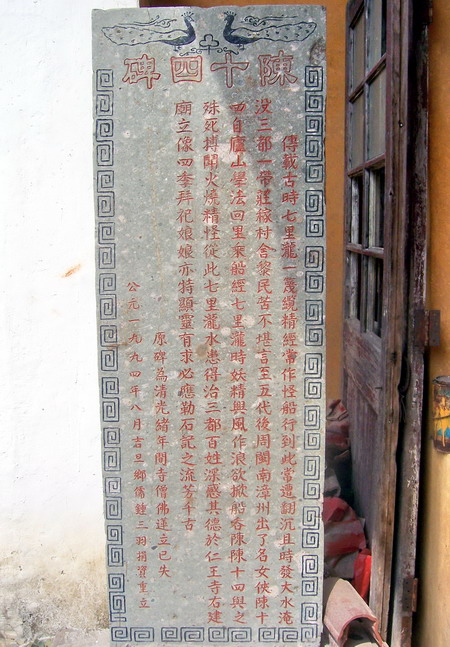 陳十四碑
傳載古時七里瀧一篾纜精經常作怪船行到此常遭翻沉且時發大水淹
没三都一帶莊稼村舍黎民苦不堪言至五代後周閩南漳州出了名女俠陳十
四自廬山學法回里乘船經七里瀧時妖精興風作浪欲掀船吞陳陳十四與之
殊死搏鬭火燒精怪從此七里瀧水患得治三都百姓深感其德於仁王寺右建
廟立像四季拜祀娘娘亦特顯靈有求必應勒石記之流芳千古
原碑為清光緒年間寺僧佛蓮立已失
公元一九九四年八月吉旦鄉儒鍾三羽捐資重立